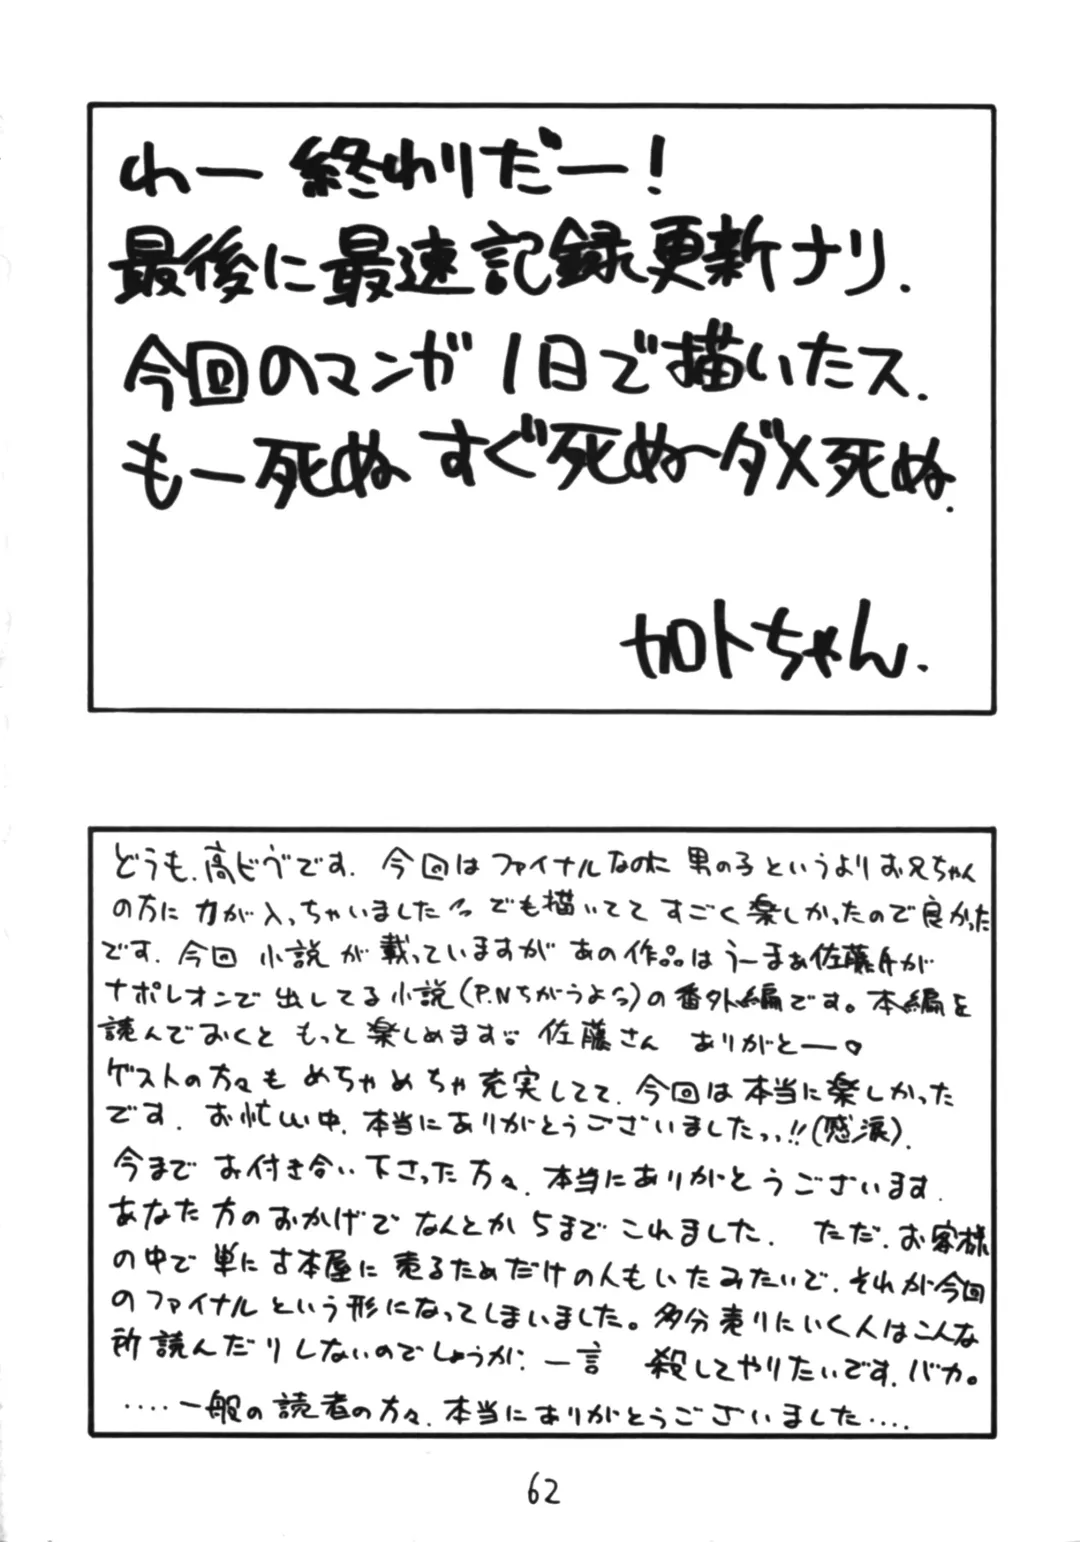 わー 終わりだー!
最後に最速記録更新ナリ.
今回のマンガ1日で描いたス.
もー死ぬ すぐ死ぬ〜ダメ死ぬ.
カロトちゃん.
どうも、高ビヴです. 今回はファイナルなのに 男の子というよりお兄ちゃん
の方に力が入っちゃいました でも描いてて すごく楽しかったので良かった
です. 今回 小説が載っていますが あの作品はうーまぁ佐藤氏が
ナポレオンで出してる小説(P.Nちがうよ)の番外編です。本編を
読んでおくと もっと楽しめます 佐藤さん ありがとー♡
ゲストの方々も めちゃめちゃ充実してて、今回は本当に楽しかった
です. お忙しい中、本当にありがとうございましたっっ!!(感涙).
今まで お付き合い下さった方々、本当にありがとうございます.
あなた方のおかげで なんとか5までこれました. ただ、お客様
の中で 単に古本屋に売るためだけの人もいたみたいで、それが今回
のファイナルという形になってしまいました。多分売りにいく人はこんな
所読んだりしないのでしょうが、一言 殺してやりたいです、バカ。
‥‥一般の読者の方々、本当にありがとうございました‥‥.
62